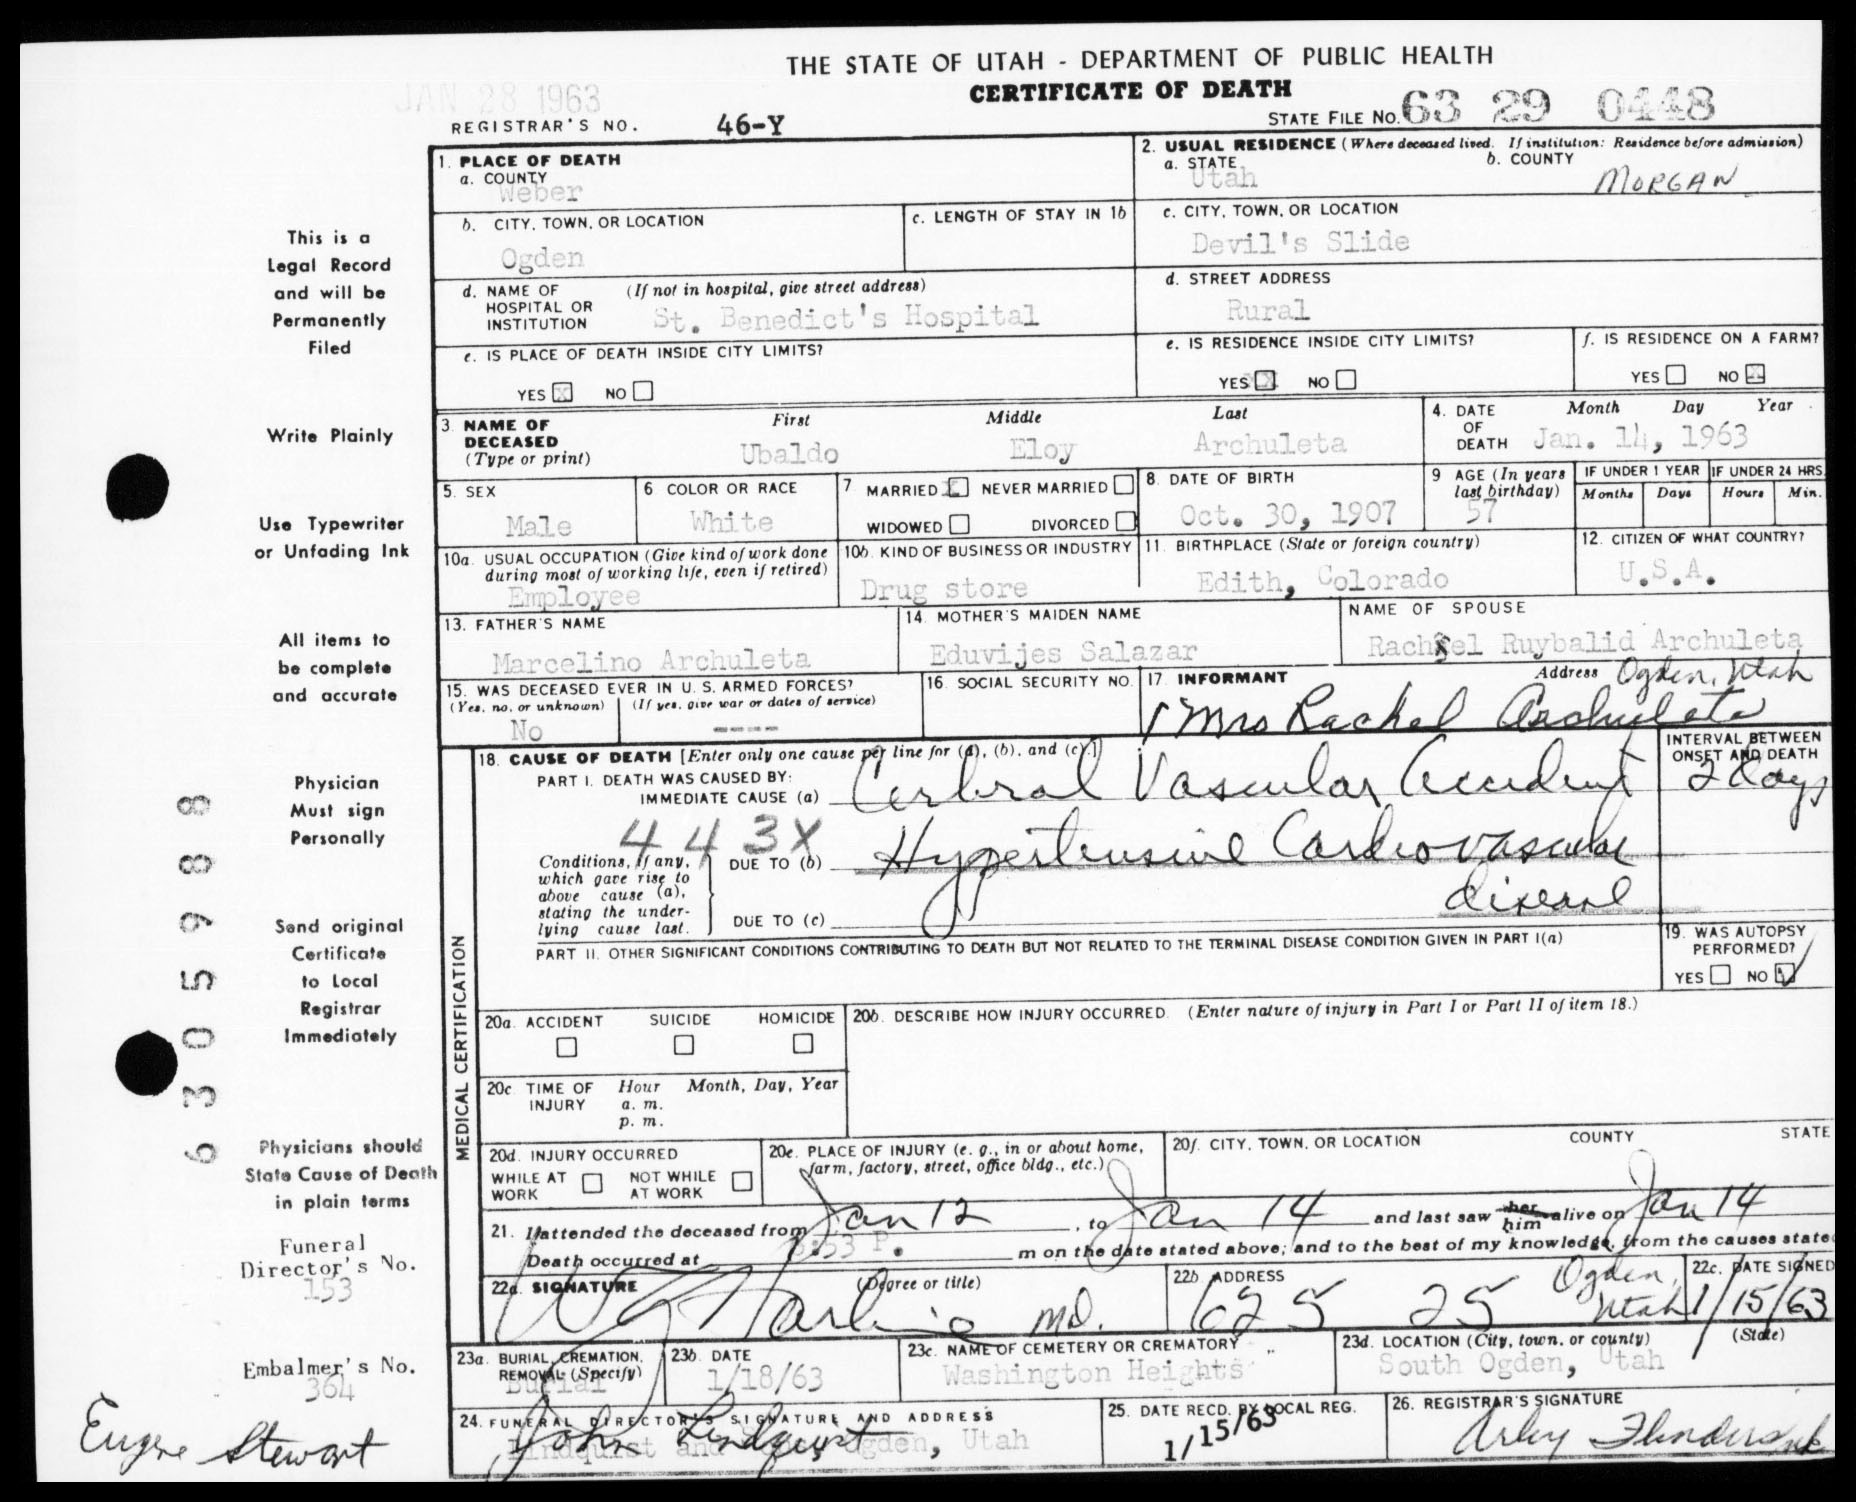 THE STATE OF UTAH - DEPARTMENT OF PUBLIC HEALTH
CERTIFICATE OF DEATH
JAN 28 1963
REGISTRAR'S NO. 46-Y
STATE FILE NO. 63 29 0448
1. PLACE OF DEATH
a. COUNTY
Weber
2. USUAL RESIDENCE (Where deceased lived. If institution: Residence before admission)
a. STATE Utah
b. COUNTY MORGAN
b. CITY, TOWN, OR LOCATION
Ogden
c. LENGTH OF STAY IN 1b
c. CITY, TOWN, OR LOCATION
Devil's Slide
d. NAME OF HOSPITAL OR INSTITUTION (If not in hospital, give street address)
St. Benedict's Hospital
d. STREET ADDRESS
Rural
e. IS PLACE OF DEATH INSIDE CITY LIMITS?
YES X NO
e. IS RESIDENCE INSIDE CITY LIMITS?
YES XX NO
f. IS RESIDENCE ON A FARM?
YES NO X
3. NAME OF DECEASED (Type or print)
First Middle Last
Ubaldo Eloy Archuleta
4. DATE OF DEATH Month Day Year
Jan. 14, 1963
5. SEX
Male
6 COLOR OR RACE
White
7 MARRIED X NEVER MARRIED
WIDOWED DIVORCED
8. DATE OF BIRTH
Oct. 30, 1907
9 AGE (In years last birthday)
57
IF UNDER 1 YEAR
Months Days
IF UNDER 24 HRS.
Hours Min.
10a. USUAL OCCUPATION (Give kind of work done during most of working life, even if retired)
Employee
10b. KIND OF BUSINESS OR INDUSTRY
Drug store
11. BIRTHPLACE (State or foreign country)
Edith, Colorado
12. CITIZEN OF WHAT COUNTRY?
U.S.A.
13. FATHER'S NAME
Marcelino Archuleta
14. MOTHER'S MAIDEN NAME
Eduvijes Salazar
NAME OF SPOUSE
Rachel Ruybalid Archuleta
15. WAS DECEASED EVER IN U. S. ARMED FORCES?
(Yes, no, or unknown) (If yes, give war or dates of service)
No ----
16. SOCIAL SECURITY NO.
17. INFORMANT Address Ogden, Utah
Mrs Rachel Archuleta
MEDICAL CERTIFICATION
18. CAUSE OF DEATH [Enter only one cause per line for (a), (b), and (c).]
PART I. DEATH WAS CAUSED BY:
IMMEDIATE CAUSE (a) Cerbral Vascular Accident
INTERVAL BETWEEN ONSET AND DEATH
2 days
443X
Conditions, if any, which gave rise to above cause (a), stating the underlying cause last.
DUE TO (b) Hypertensive Cardiovascular
disease
DUE TO (c)
PART II. OTHER SIGNIFICANT CONDITIONS CONTRIBUTING TO DEATH BUT NOT RELATED TO THE TERMINAL DISEASE CONDITION GIVEN IN PART I(a)
19. WAS AUTOPSY PERFORMED?
YES NO ✓
20a. ACCIDENT SUICIDE HOMICIDE
20b. DESCRIBE HOW INJURY OCCURRED. (Enter nature of injury in Part I or Part II of item 18.)
20c TIME OF INJURY Hour Month, Day, Year
a. m.
p. m.
20d. INJURY OCCURRED
WHILE AT WORK NOT WHILE AT WORK
20e. PLACE OF INJURY (e. g., in or about home, farm, factory, street, office bldg., etc.)
20f. CITY, TOWN, OR LOCATION COUNTY STATE
21. I attended the deceased from Jan 12, to Jan 14 and last saw her him alive on Jan 14
Death occurred at :53 P. m on the date stated above; and to the best of my knowledge, from the causes state
22a. SIGNATURE (Degree or title)
MD.
22b. ADDRESS
625 25 Ogden, Utah
22c. DATE SIGNED
1/15/63
23a. BURIAL, CREMATION, REMOVAL (Specify)
Burial
23b. DATE
1/18/63
23c. NAME OF CEMETERY OR CREMATORY
Washington Heights
23d. LOCATION (City, town, or county) (State)
South Ogden, Utah
24. FUNERAL DIRECTOR'S SIGNATURE AND ADDRESS
John Lindquist
Lindquist and Ogden, Utah
25. DATE RECD. BY LOCAL REG.
1/15/63
26. REGISTRAR'S SIGNATURE
Arley Flinders
This is a
Legal Record
and will be
Permanently
Filed
Write Plainly
Use Typewriter
or Unfading Ink
All items to
be complete
and accurate
Physician
Must sign
Personally
Send original
Certificate
to Local
Registrar
Immediately
Physicians should
State Cause of Death
in plain terms
Funeral
Director's No.
153
Embalmer's No.
364
Eugene Stewart
630 5988